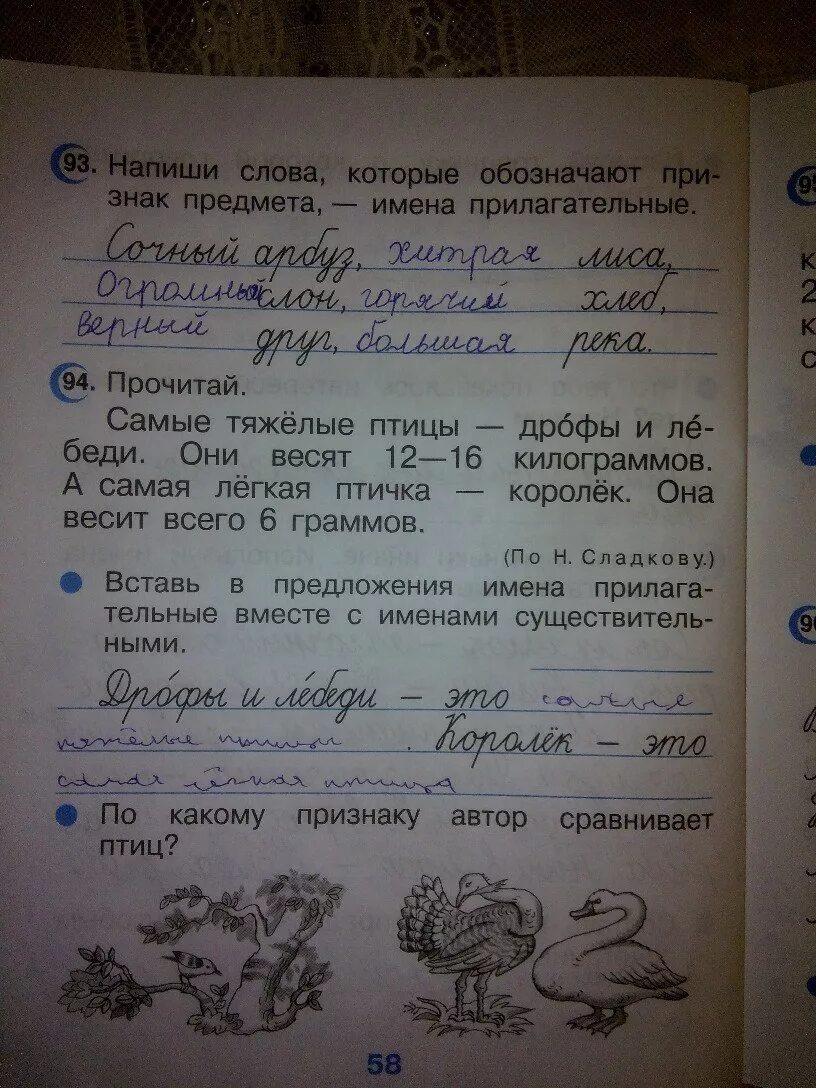 93. Напиши слова, которые обозначают при-
знак предмета, — имена прилагательные.
Сочный арбуз, хитрая лиса,
Огромный слон, горячий хлеб,
верный друг, большая река.
94. Прочитай.
Самые тяжёлые птицы — дро́фы и ле́-
беди. Они весят 12—16 килограммов.
А самая лёгкая птичка — королёк. Она
весит всего 6 граммов.
(По Н. Сладкову.)
Вставь в предложения имена прилага-
тельные вместе с именами существитель-
ными.
Дро́фы и ле́беди — это самые
тяжёлые птицы . Королёк — это
самая лёгкая птица
По какому признаку автор сравнивает
птиц?
58